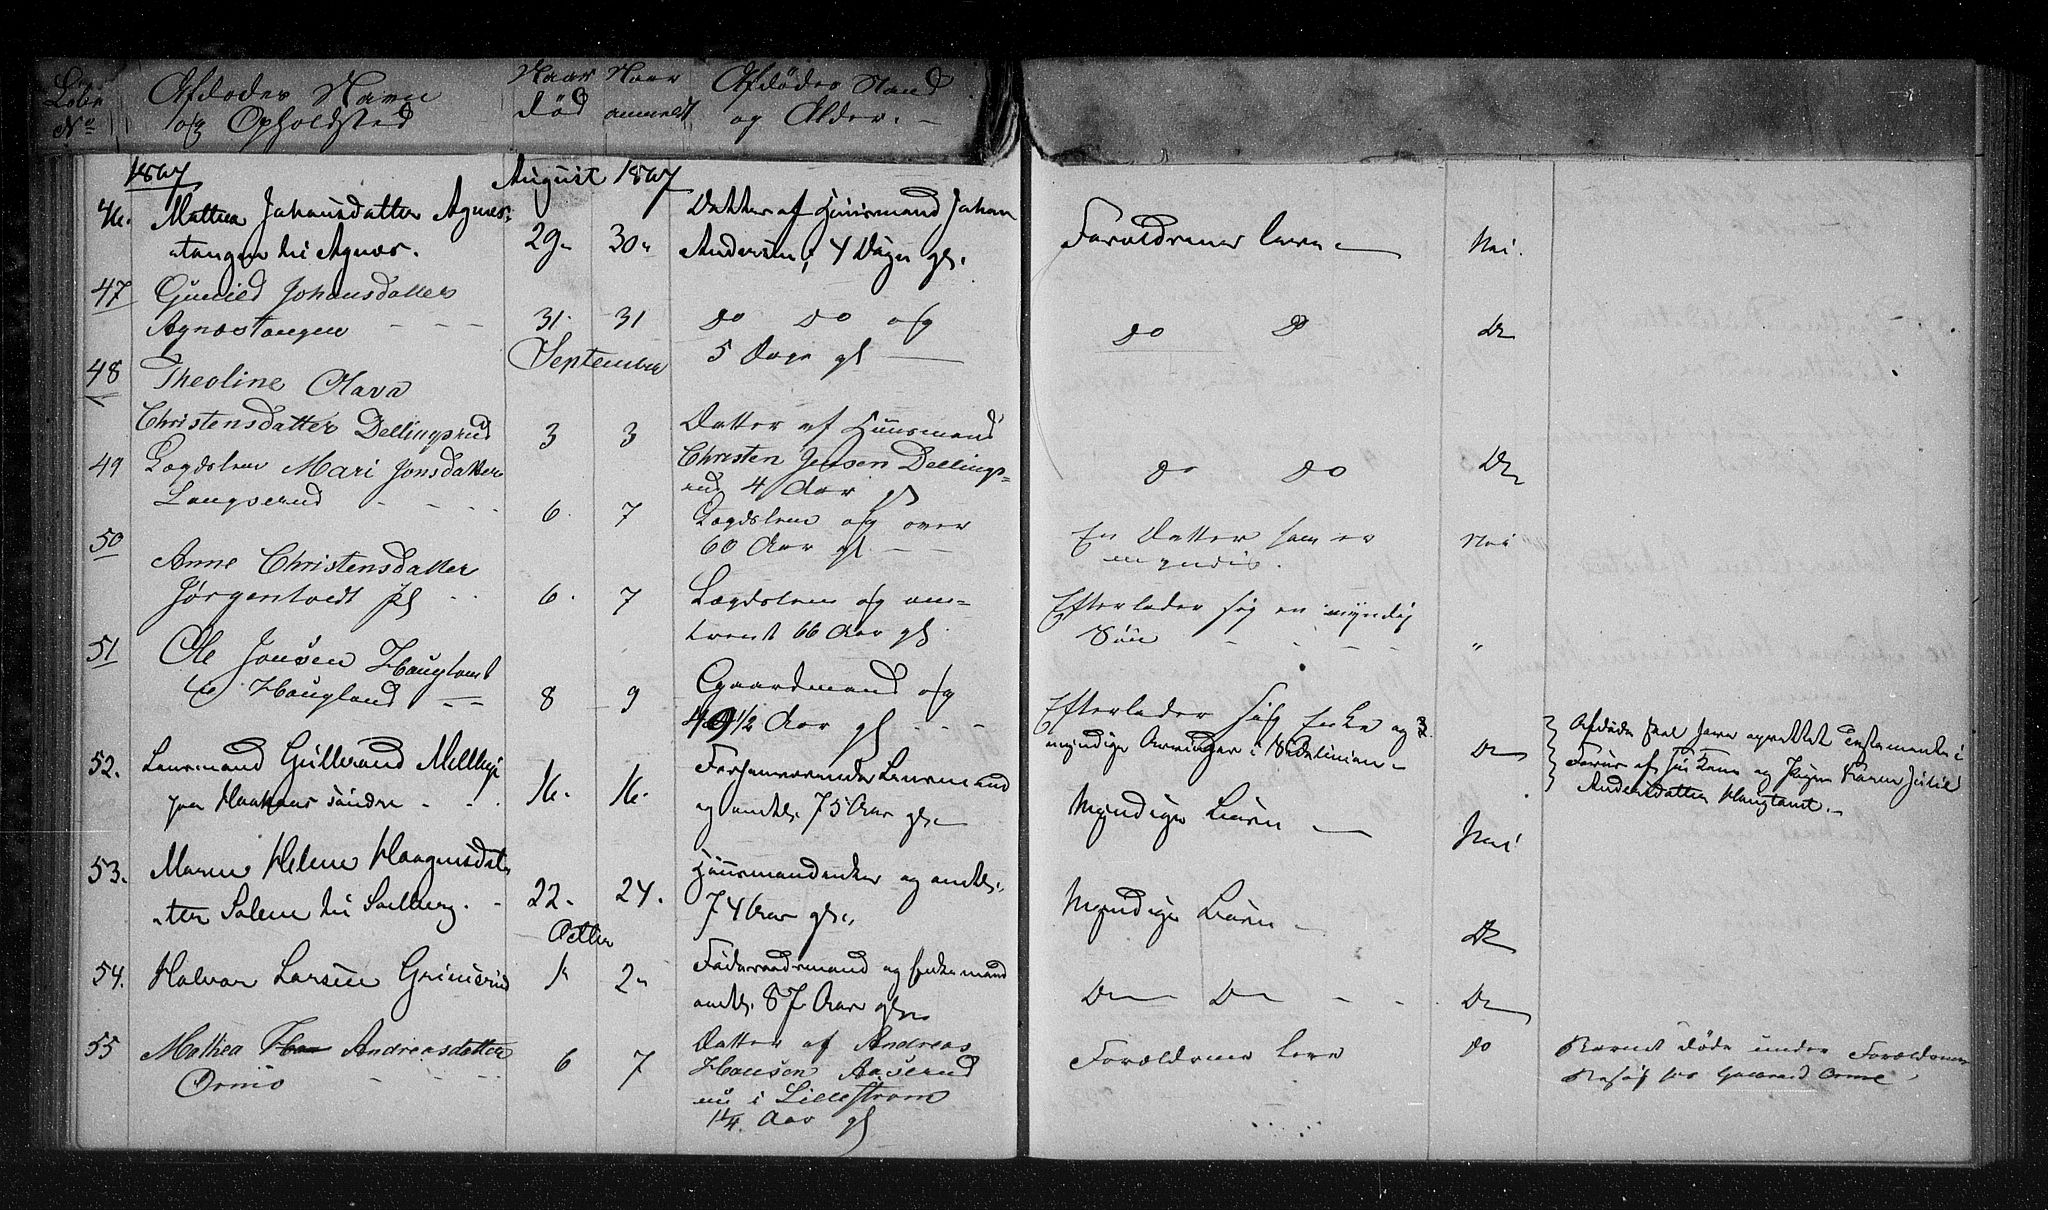 Løbe
No
Afdødes Navn
og Opholdsted
Naar
død
Naar
anmeldt
Afdødes Stand
og Alder. —
1867
August 1867
46. Mathea Johansdatter Agnes-
tangen hri Agnæs.
29 30
Datter af Huusmand Johan
Andersen, 4 Dage gl.
Forældrene leve —
Nei.
47 Gunild Johansdatter
Agnæstangen - - -
31. 31
do do og
5 Dage gl —
do do
Do
September
48 Theoline Olava
Christensdatter Dellingsrud
3 3
Datter af Huusmand
Christen Jensen Dellings-
rud 4 Aar gl
do do
Do
49 Lægdslem Mari Jonsdatter
Langserud - - -
6. 7
Lægdslem og over
60 Aar gl. - -
En Datter som er
myndig.
Nei
50 Anne Christensdatter
Jørgentvedt pl - -
6. 7
Lægdslem og om-
trent 66 Aar gl.
Efterlader sig en myndig
Søn - - - -
"
51 Ole Jonsen Haugtomt
Haugland - -
8 9
Gaardmand og
49 1/2 Aar gl - -
Efterlader sig Enke og
myndige Arvinger i Sidelinien -
Do
Afdøde skal have oprettet Testamente i
Faveur af sin Kone og Pigen Karen Julie
Andersdatter Haugtomt. -
52. Lensmand Gulbrand Mellbye
paa Haakaas søndre - -
16. 16.
Forhenværende Lensmand
og omtr. 75 Aar gl. —
Myndige Børn —
Nei
53. Maren Helene Haagensdat-
ter Solem hri Solberg. -
22. 24.
Huusmandenke og omtr.
74 Aar gl.
Myndige Børn —
Do
October
54. Halvor Larsen Grimsrud
1 2
Føderaadsmand og Enkemand
omtr. 87 Aar gl.
Do Do - -
Do
55 Mathea Andreasdatter
Ormo - - -
6 7
Datter af Andreas
Hansen Aaserud
nu i Lillestrøm
1 1/4 Aar gl
Forældrene leve
do
Barnet døde under Forældrenes
Besøg hos Gulbrand Ormo